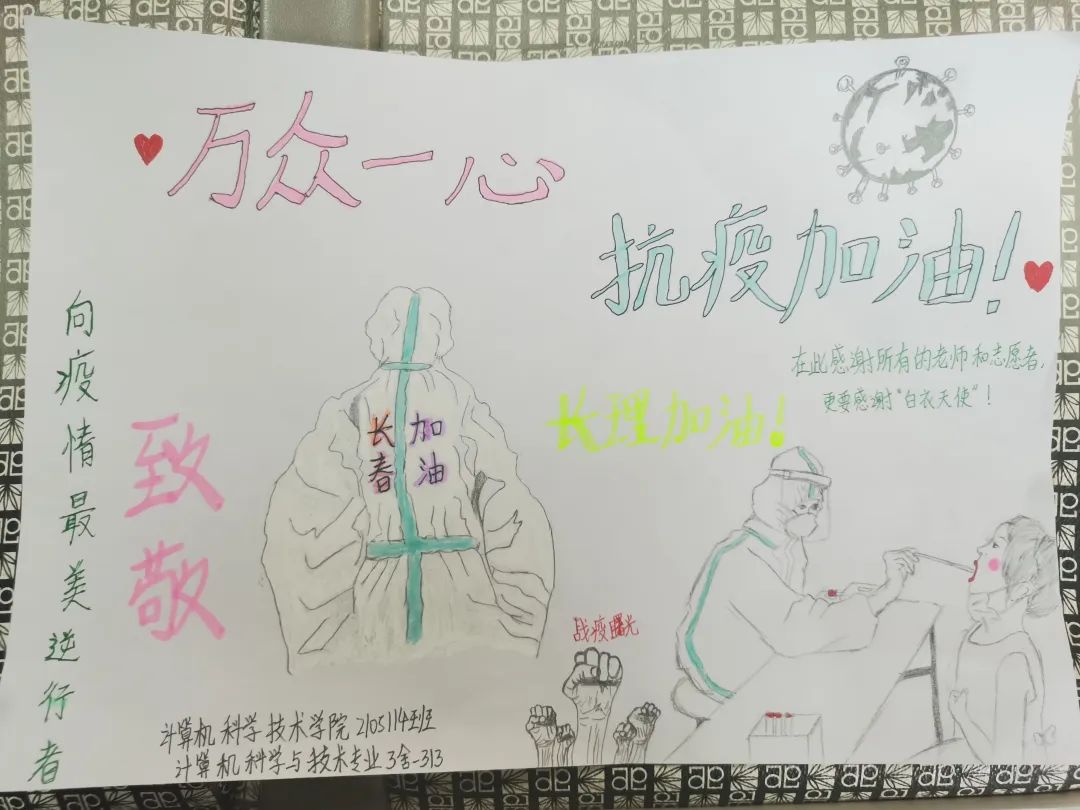 万众一心
抗疫加油！
在此感谢所有的老师和志愿者，
更要感谢"白衣天使"！
长理加油！
向疫情最美逆行者
致敬
长春
加油
战疫曙光
计算机科学技术学院2105114班
计算机科学与技术专业3舍-313